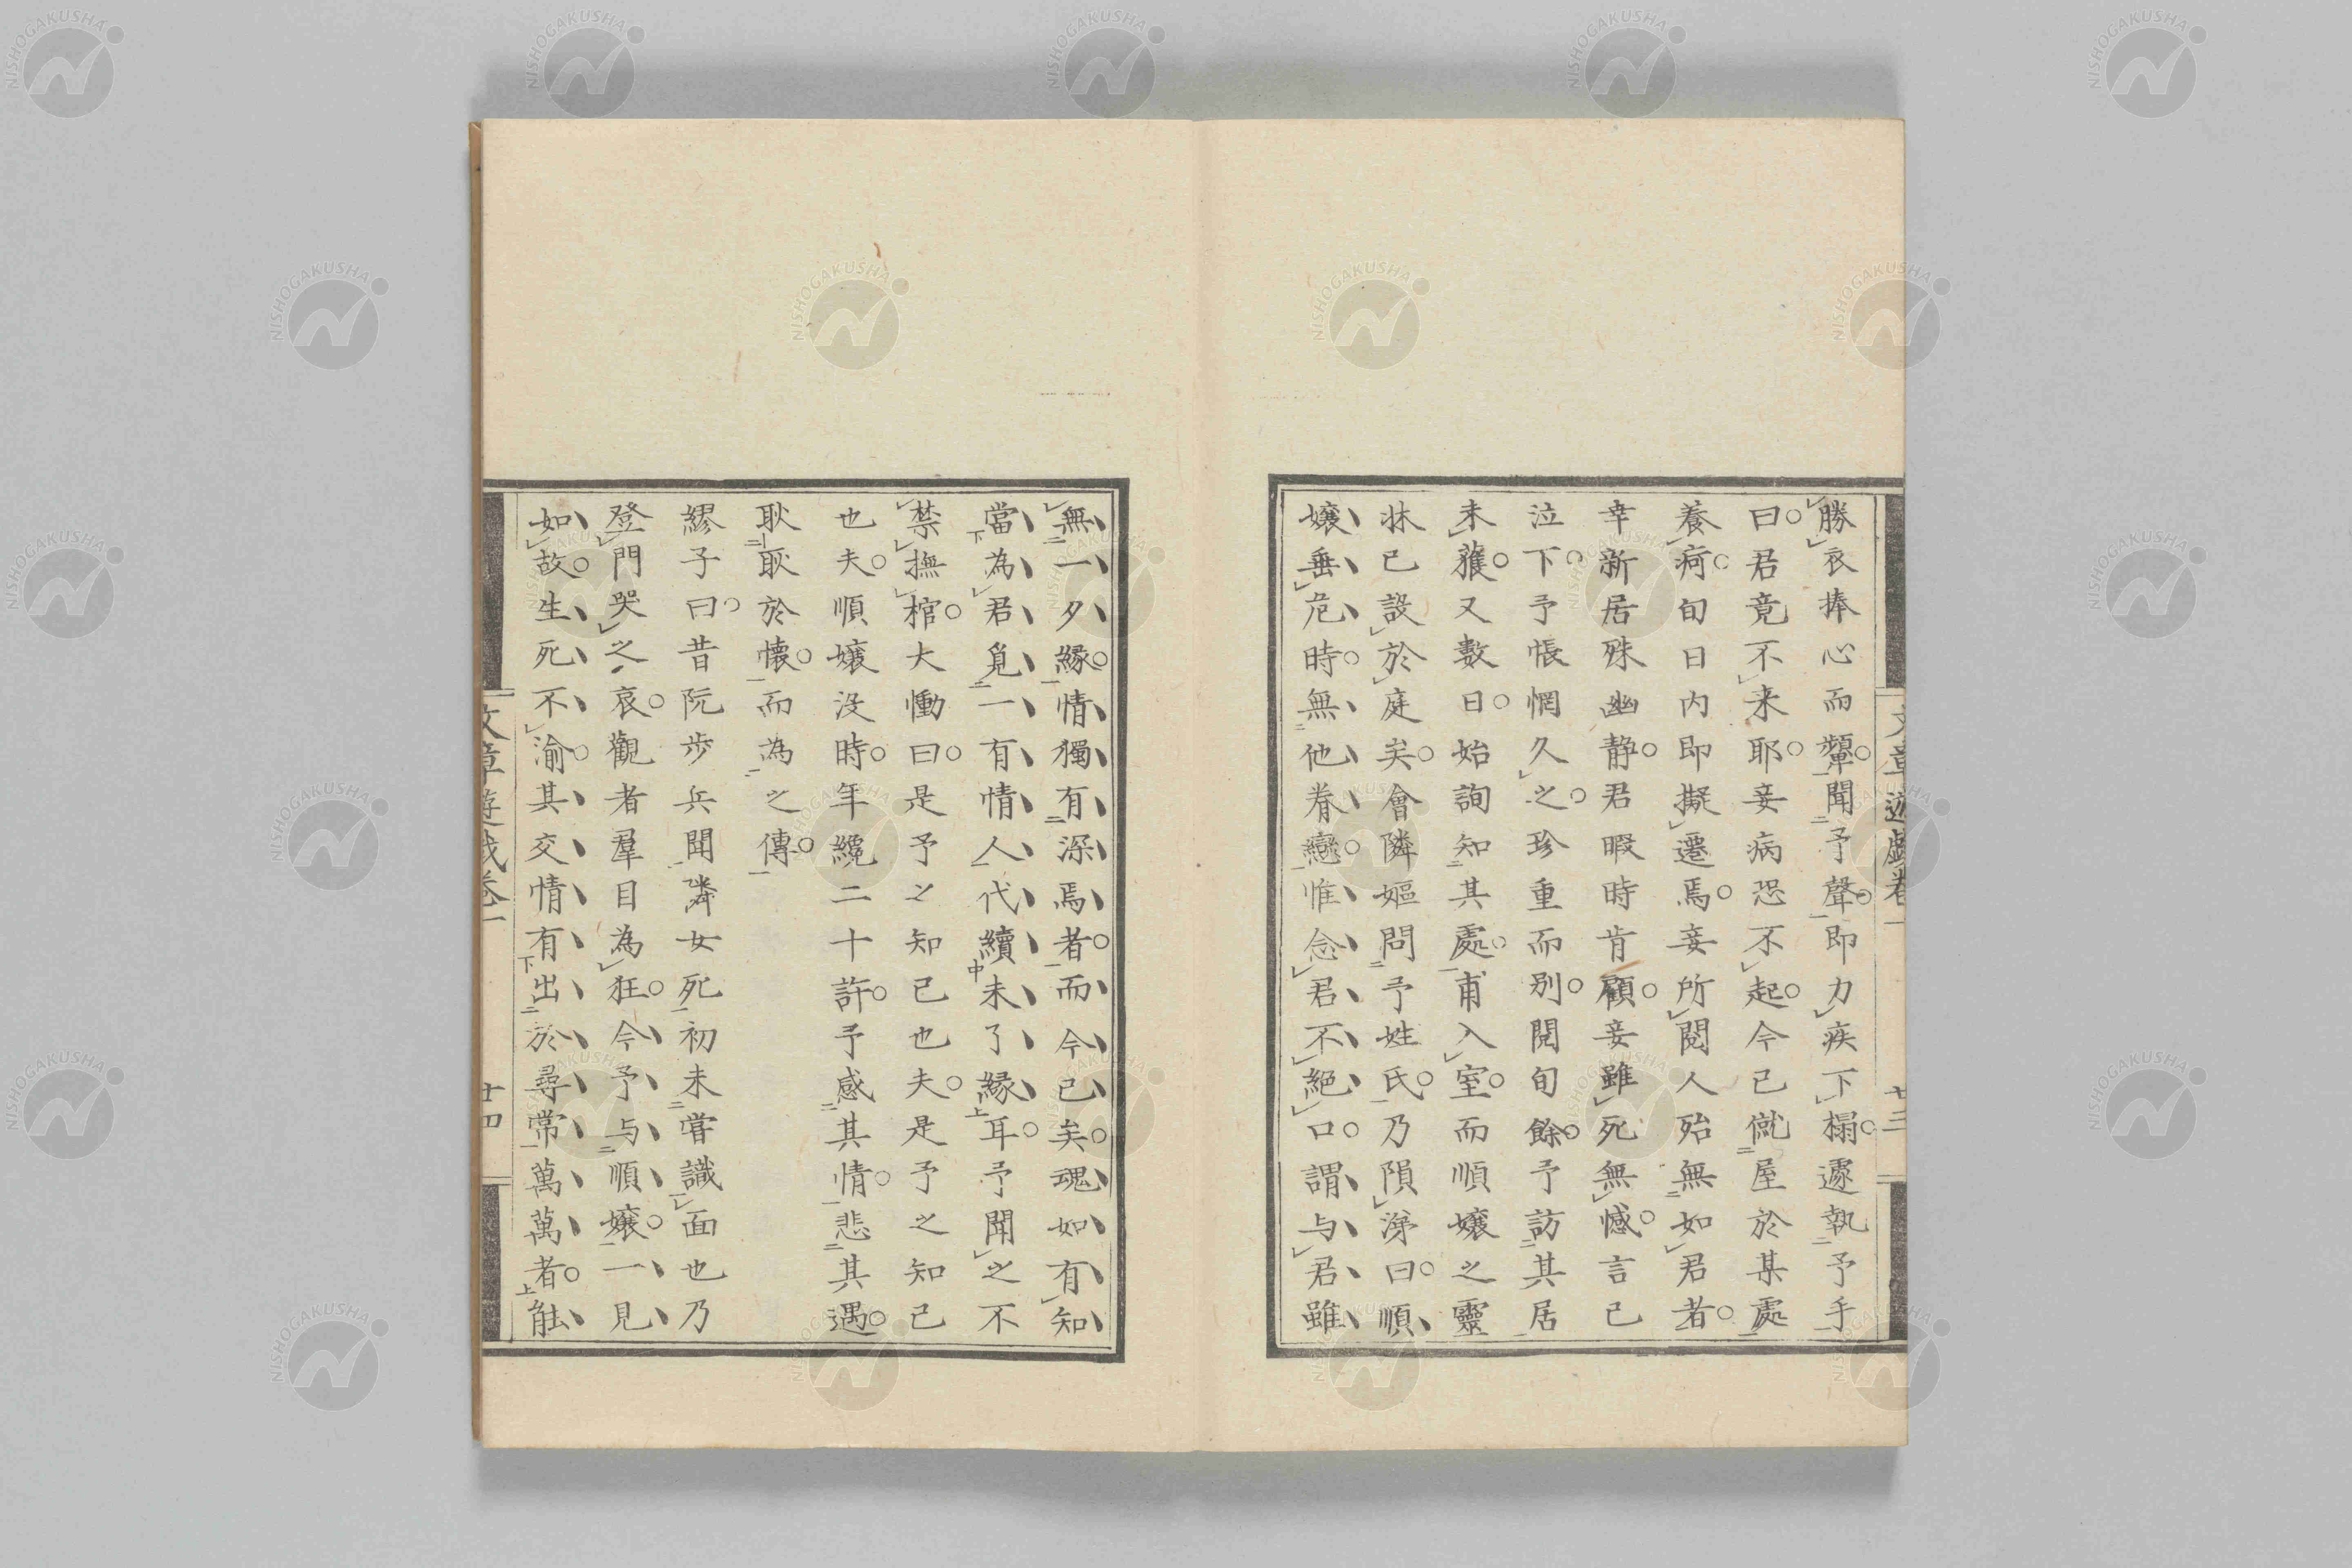 勝衣捧心而顰聞予聲即力疾下榻遽執予手
曰君竟不来耶妾病恐不起今已僦屋於某處
養疴旬日内即擬遷焉妾所閲人殆無如君者
幸新居殊幽静君暇時肯顧妾雖死無憾言已
泣下予悵惘久之珍重而别閲旬餘予訪其居
未獲又數日始詢知其處甫入室而順孃之靈
牀已設於庭矣會隣嫗問予姓氏乃隕涕曰順
孃垂危時無他眷戀惟念君不絕口謂与君雖
無一夕縁情獨有深焉者而今已矣魂如有知
當為君覓一有情人代續未了縁耳予聞之不
禁撫棺大慟曰是予之知已也夫是予之知已
也夫順孃没時年纔二十許予感其情悲其遇
耿耿於懷而為之傳
繆子曰昔阮步兵聞隣女死初未嘗識面也乃
登門哭之哀觀者羣目為狂今予与順孃一見
如故生死不渝其交情有出於尋常萬萬者能
文章遊戯卷一
廿三
文章遊戯卷一
廿四
NISHOGAKUSHA